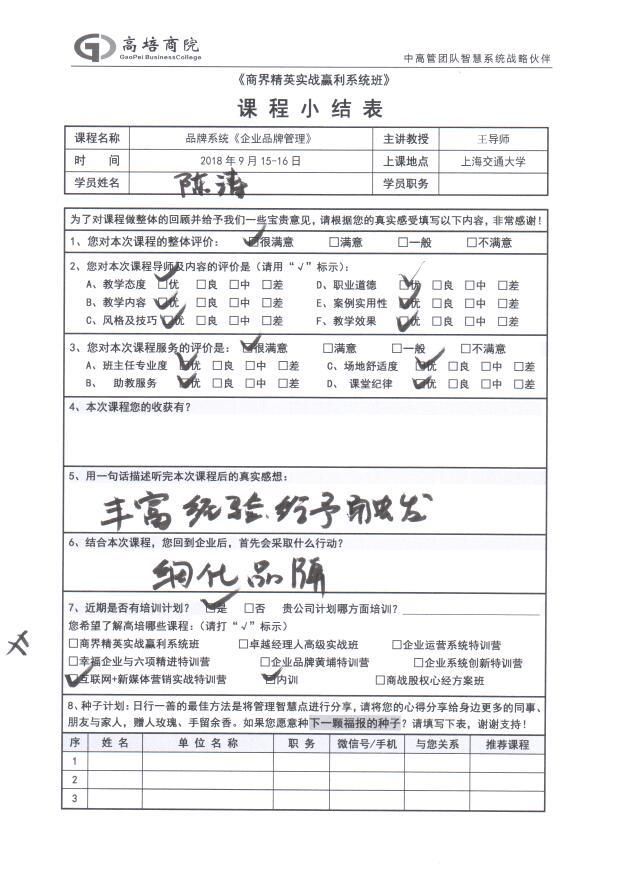 高培商院
GaoPei BusinessCollege
中高管团队智慧系统战略伙伴
《商界精英实战赢利系统班》
课程小结表
课程名称 品牌系统《企业品牌管理》 主讲教授 王导师
时 间 2018年9月15-16日 上课地点 上海交通大学
学员姓名 陈涛 学员职务
为了对课程做整体的回顾并给予我们一些宝贵意见，请根据您的真实感受填写以下内容，非常感谢！
1、您对本次课程的整体评价： ☑很满意 □满意 □一般 □不满意
2、您对本次课程导师及内容的评价是（请用“√”标示）：
A、教学态度 ☑优 □良 □中 □差 D、职业道德 ☑优 □良 □中 □差
B、教学内容 ☑优 □良 □中 □差 E、案例实用性 ☑优 □良 □中 □差
C、风格及技巧 ☑优 □良 □中 □差 F、教学效果 ☑优 □良 □中 □差
3、您对本次课程服务的评价是： ☑很满意 □满意 □一般 □不满意
A、班主任专业度 ☑优 □良 □中 □差 C、场地舒适度 ☑优 □良 □中 □差
B、 助教服务 ☑优 □良 □中 □差 D、 课堂纪律 ☑优 □良 □中 □差
4、本次课程您的收获有？
5、用一句话描述听完本次课程后的真实感想：
丰富经验.给予触发
6、结合本次课程，您回到企业后，首先会采取什么行动？
细化品牌
7、近期是否有培训计划？ ☑是 □否 贵公司计划哪方面培训？
您希望了解高培哪些课程：（请打“√”标示）
□商界精英实战赢利系统班 □卓越经理人高级实战班 □企业运营系统特训营
□幸福企业与六项精进特训营 □企业品牌黄埔特训营 □企业系统创新特训营
☑互联网+新媒体营销实战特训营 ☑内训 □商战股权心经方案班
8、种子计划：日行一善的最佳方法是将管理智慧点进行分享，请将您的心得分享给身边更多的同事、
朋友与家人，赠人玫瑰、手留余香。如果您愿意种下一颗福报的种子？请填写下表，谢谢支持！
序 姓 名 单 位 名 称 职 务 微信号/手机 与您关系 推荐课程
1
2
3